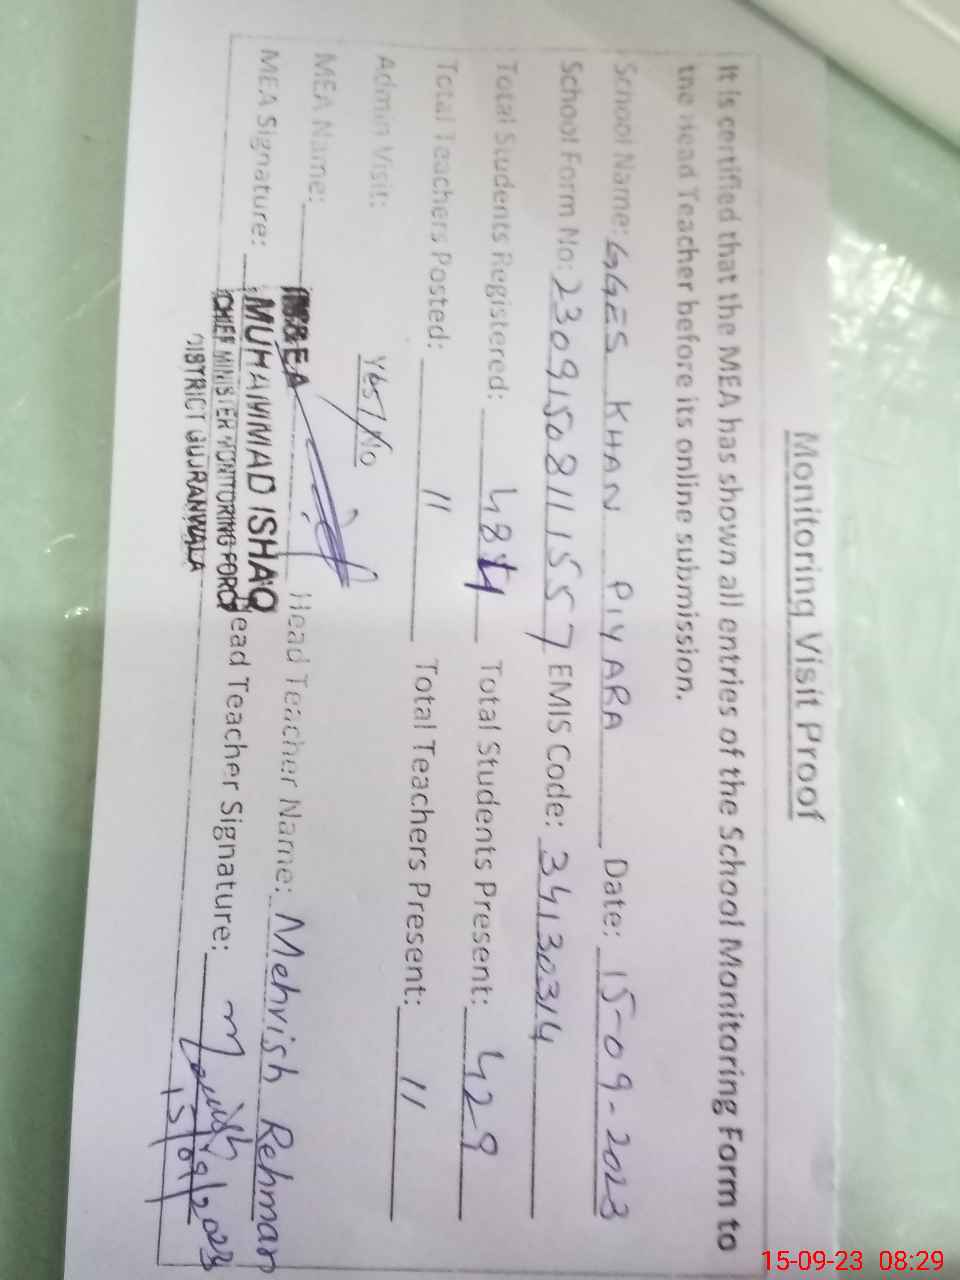 Monitoring Visit Proof
It is certified that the MEA has shown all entries of the School Monitoring Form to
the Head Teacher before its online submission.
School Name: GGES KHAN PIYARA Date: 15-09-2023
School Form No: 2309150811557 EMIS Code: 34130314
Total Students Registered: 484 Total Students Present: 429
Total Teachers Posted: 11 Total Teachers Present: 11
Admin Visit: Yes/No
MEA Name: M&EA Head Teacher Name: Mehvish Rehman
MEA Signature: MUHAMMAD ISHAQ Head Teacher Signature: Mehvish
CHIEF MINISTER MONITORING FORCE
DISTRICT GUJRANWALA
15/09/2023
15-09-23 08:29